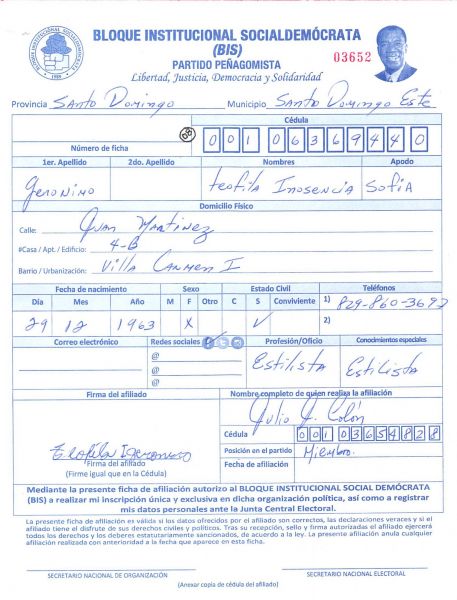 BLOQUE INSTITUCIONAL SOCIALDEMÓCRATA
(BIS)
PARTIDO PEÑAGOMISTA
Libertad, Justicia, Democracia y Solidaridad
03652
Provincia Santo Domingo Municipio Santo Domingo Este
Cédula
Número de ficha 001 0636944 0
1er. Apellido 2do. Apellido Nombres Apodo
Geronimo Teofila Inosencia Sofia
Domicilio Físico
Calle: Juan Martinez
#Casa / Apt. / Edificio: 4-B
Barrio / Urbanización: Villa Carmen I
Fecha de nacimiento Sexo Estado Civil Teléfonos
Día Mes Año M F Otro C S Conviviente 1) 829-860-3692
29 12 1963 X ✓ 2)
Correo electrónico Redes sociales Profesión/Oficio Conocimientos especiales
@ Estilista Estilista
@
@
Firma del afiliado Nombre completo de quien realiza la afiliación
Julio J. Colón
Cédula 001 0365482 8
Firma del afiliado Posición en el partido Miembro.
(Firme igual que en la Cédula) Fecha de afiliación
Mediante la presente ficha de afiliación autorizo al BLOQUE INSTITUCIONAL SOCIAL DEMÓCRATA
(BIS) a realizar mi inscripción única y exclusiva en dicha organización política, así como a registrar
mis datos personales ante la Junta Central Electoral.
La presente ficha de afiliación es válida si los datos ofrecidos por el afiliado son correctos, las declaraciones veraces y si el afiliado
tiene el disfrute de sus derechos civiles y políticos. Tras su recepción, sello y firma autorizadas el afiliado ejercerá
todos los derechos y los deberes estatutariamente sancionados, de acuerdo a la ley. La presente afiliación anula cualquier
afiliación realizada con anterioridad a la fecha que aparece en esta ficha.
SECRETARIO NACIONAL DE ORGANIZACIÓN SECRETARIO NACIONAL ELECTORAL
(Anexar copia de cédula del afiliado)